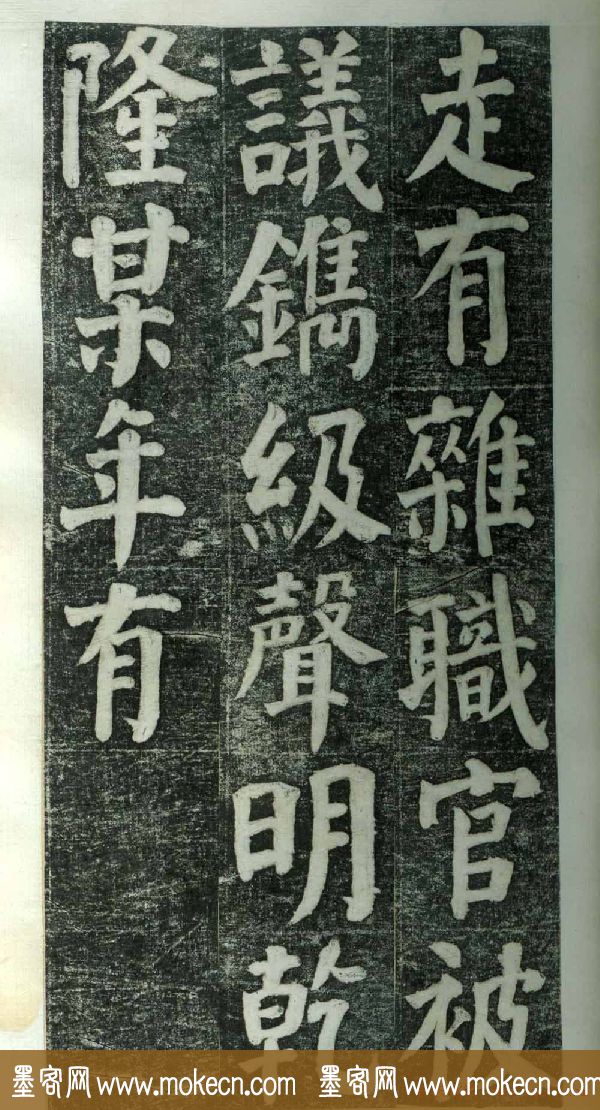 走有雜職官被
議鐫級聲明乾
隆某年有
墨客网 www.mokecn.com 墨客网 www.mokecn.com